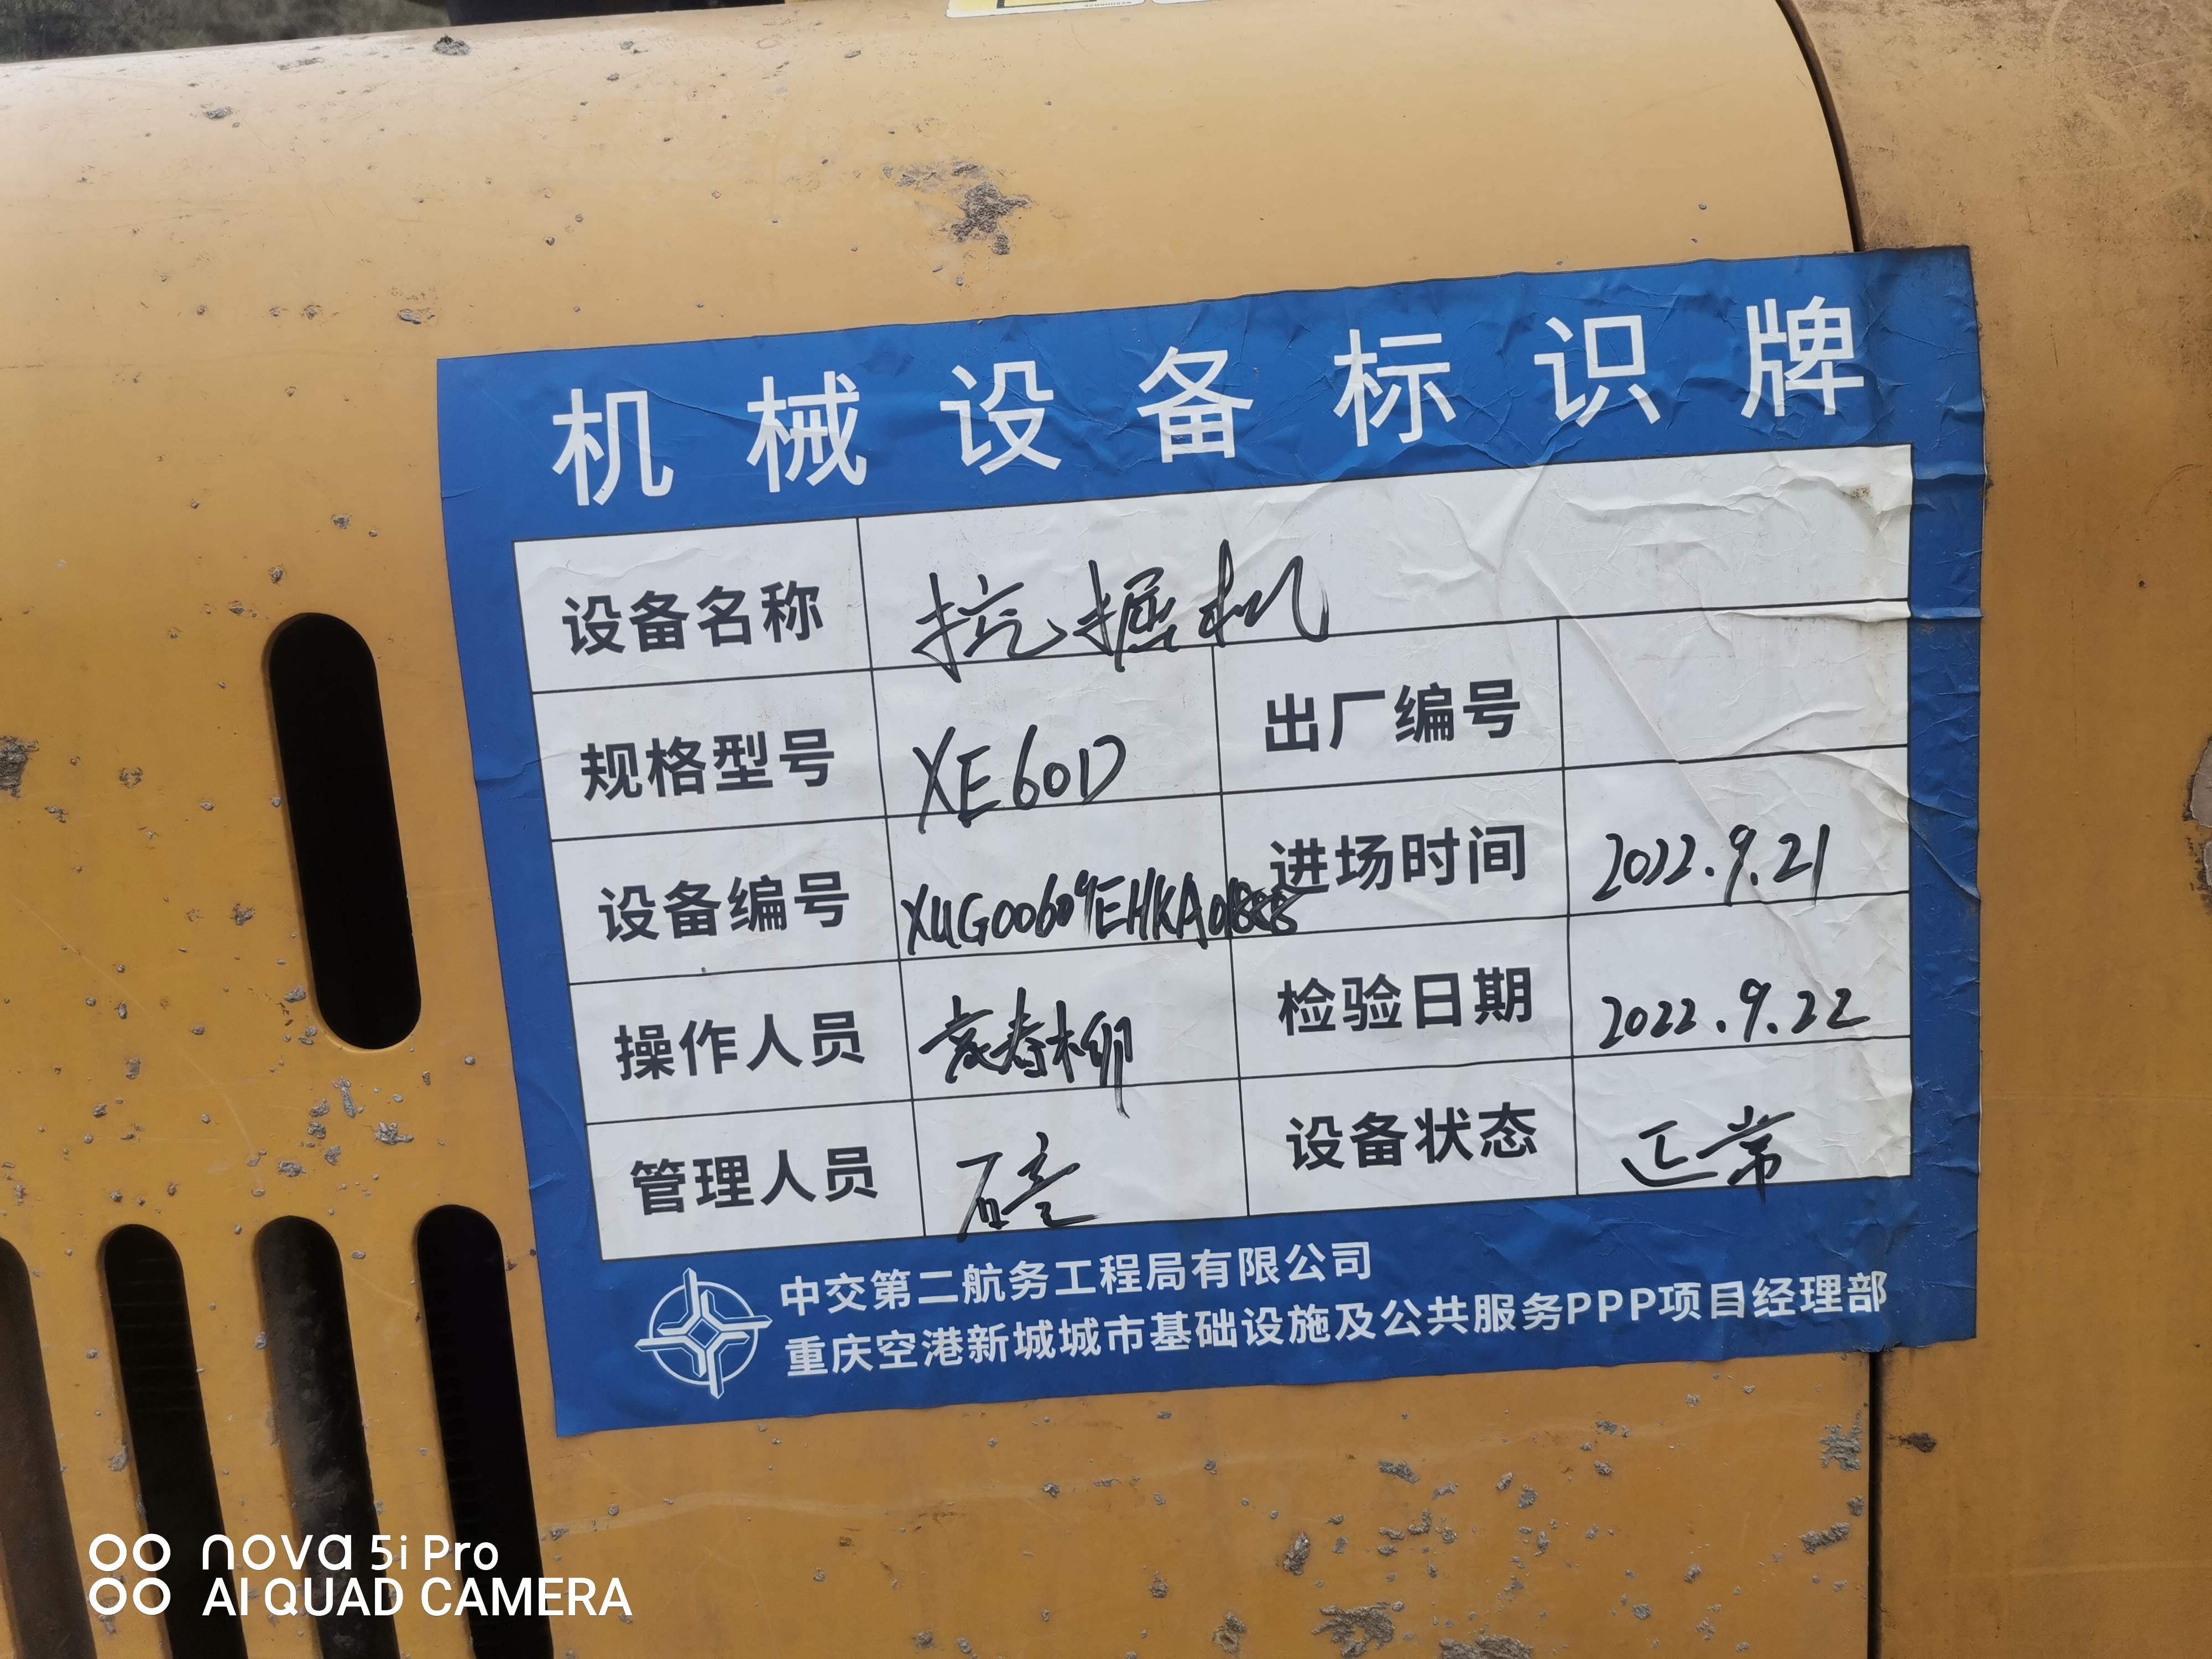 机械设备标识牌
设备名称 挖掘机
规格型号 XE60D 出厂编号
设备编号 进场时间 2022.9.21
操作人员 检验日期 2022.9.22
管理人员 设备状态 正常
中交第二航务工程局有限公司
重庆空港新城城市基础设施及公共服务PPP项目经理部
nova 5i Pro
AI QUAD CAMERA